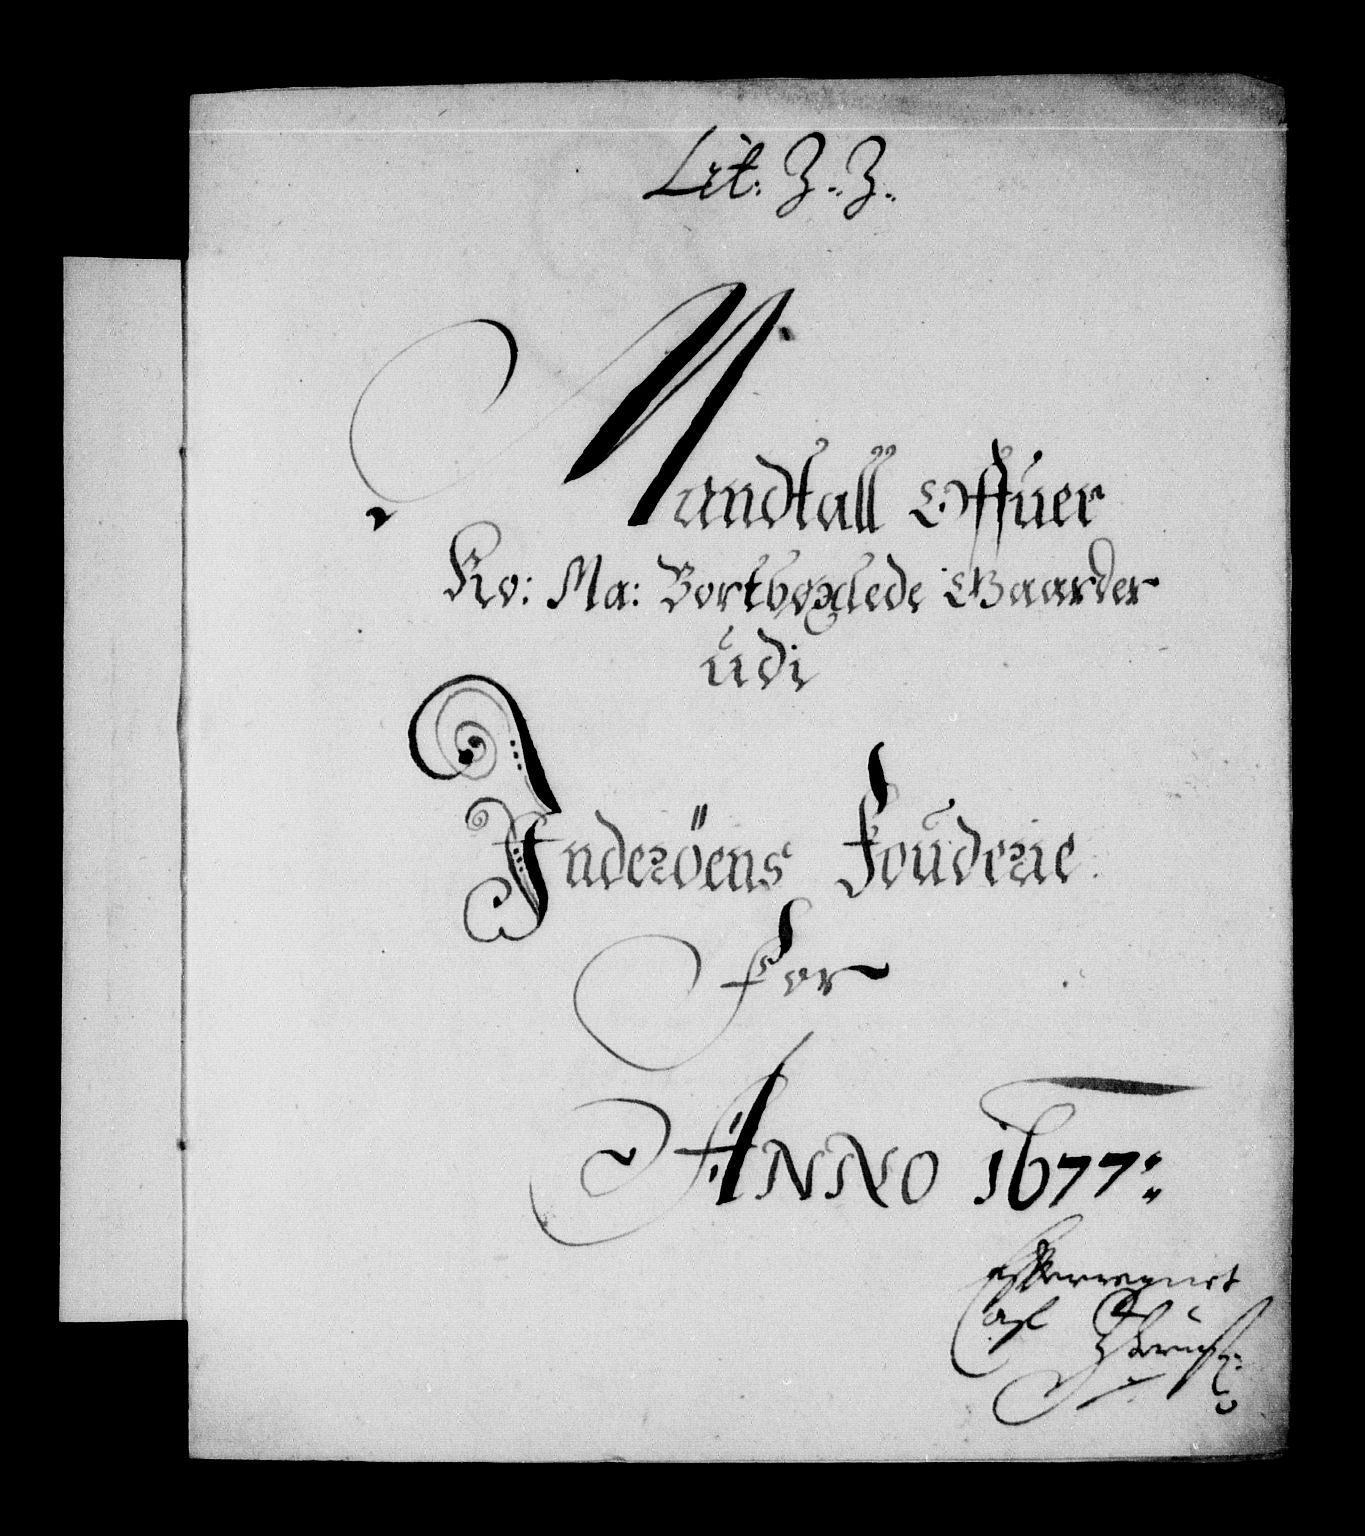 Lit: Z: Z:
Mandtall Offuer
Ko: Ma: Bortbøxlede Gaarder
udi
Inderöens Fouderie
For
ANNO 1677:
Efterregnet